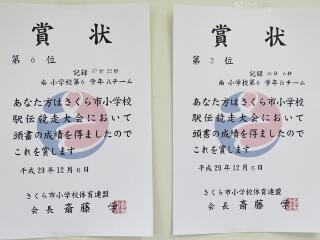 賞状
第6位
記録 37分22秒
南小学校第6学年Aチーム
あなた方はさくら市小学校
駅伝競走大会において
頭書の成績を得ましたので
これを賞します
平成29年12月6日
さくら市小学校体育連盟
会長 斎藤
賞状
第2位
記録 36分6秒
南小学校第6学年Bチーム
あなた方はさくら市小学校
駅伝競走大会において
頭書の成績を得ましたので
これを賞します
平成29年12月6日
さくら市小学校体育連盟
会長 斎藤